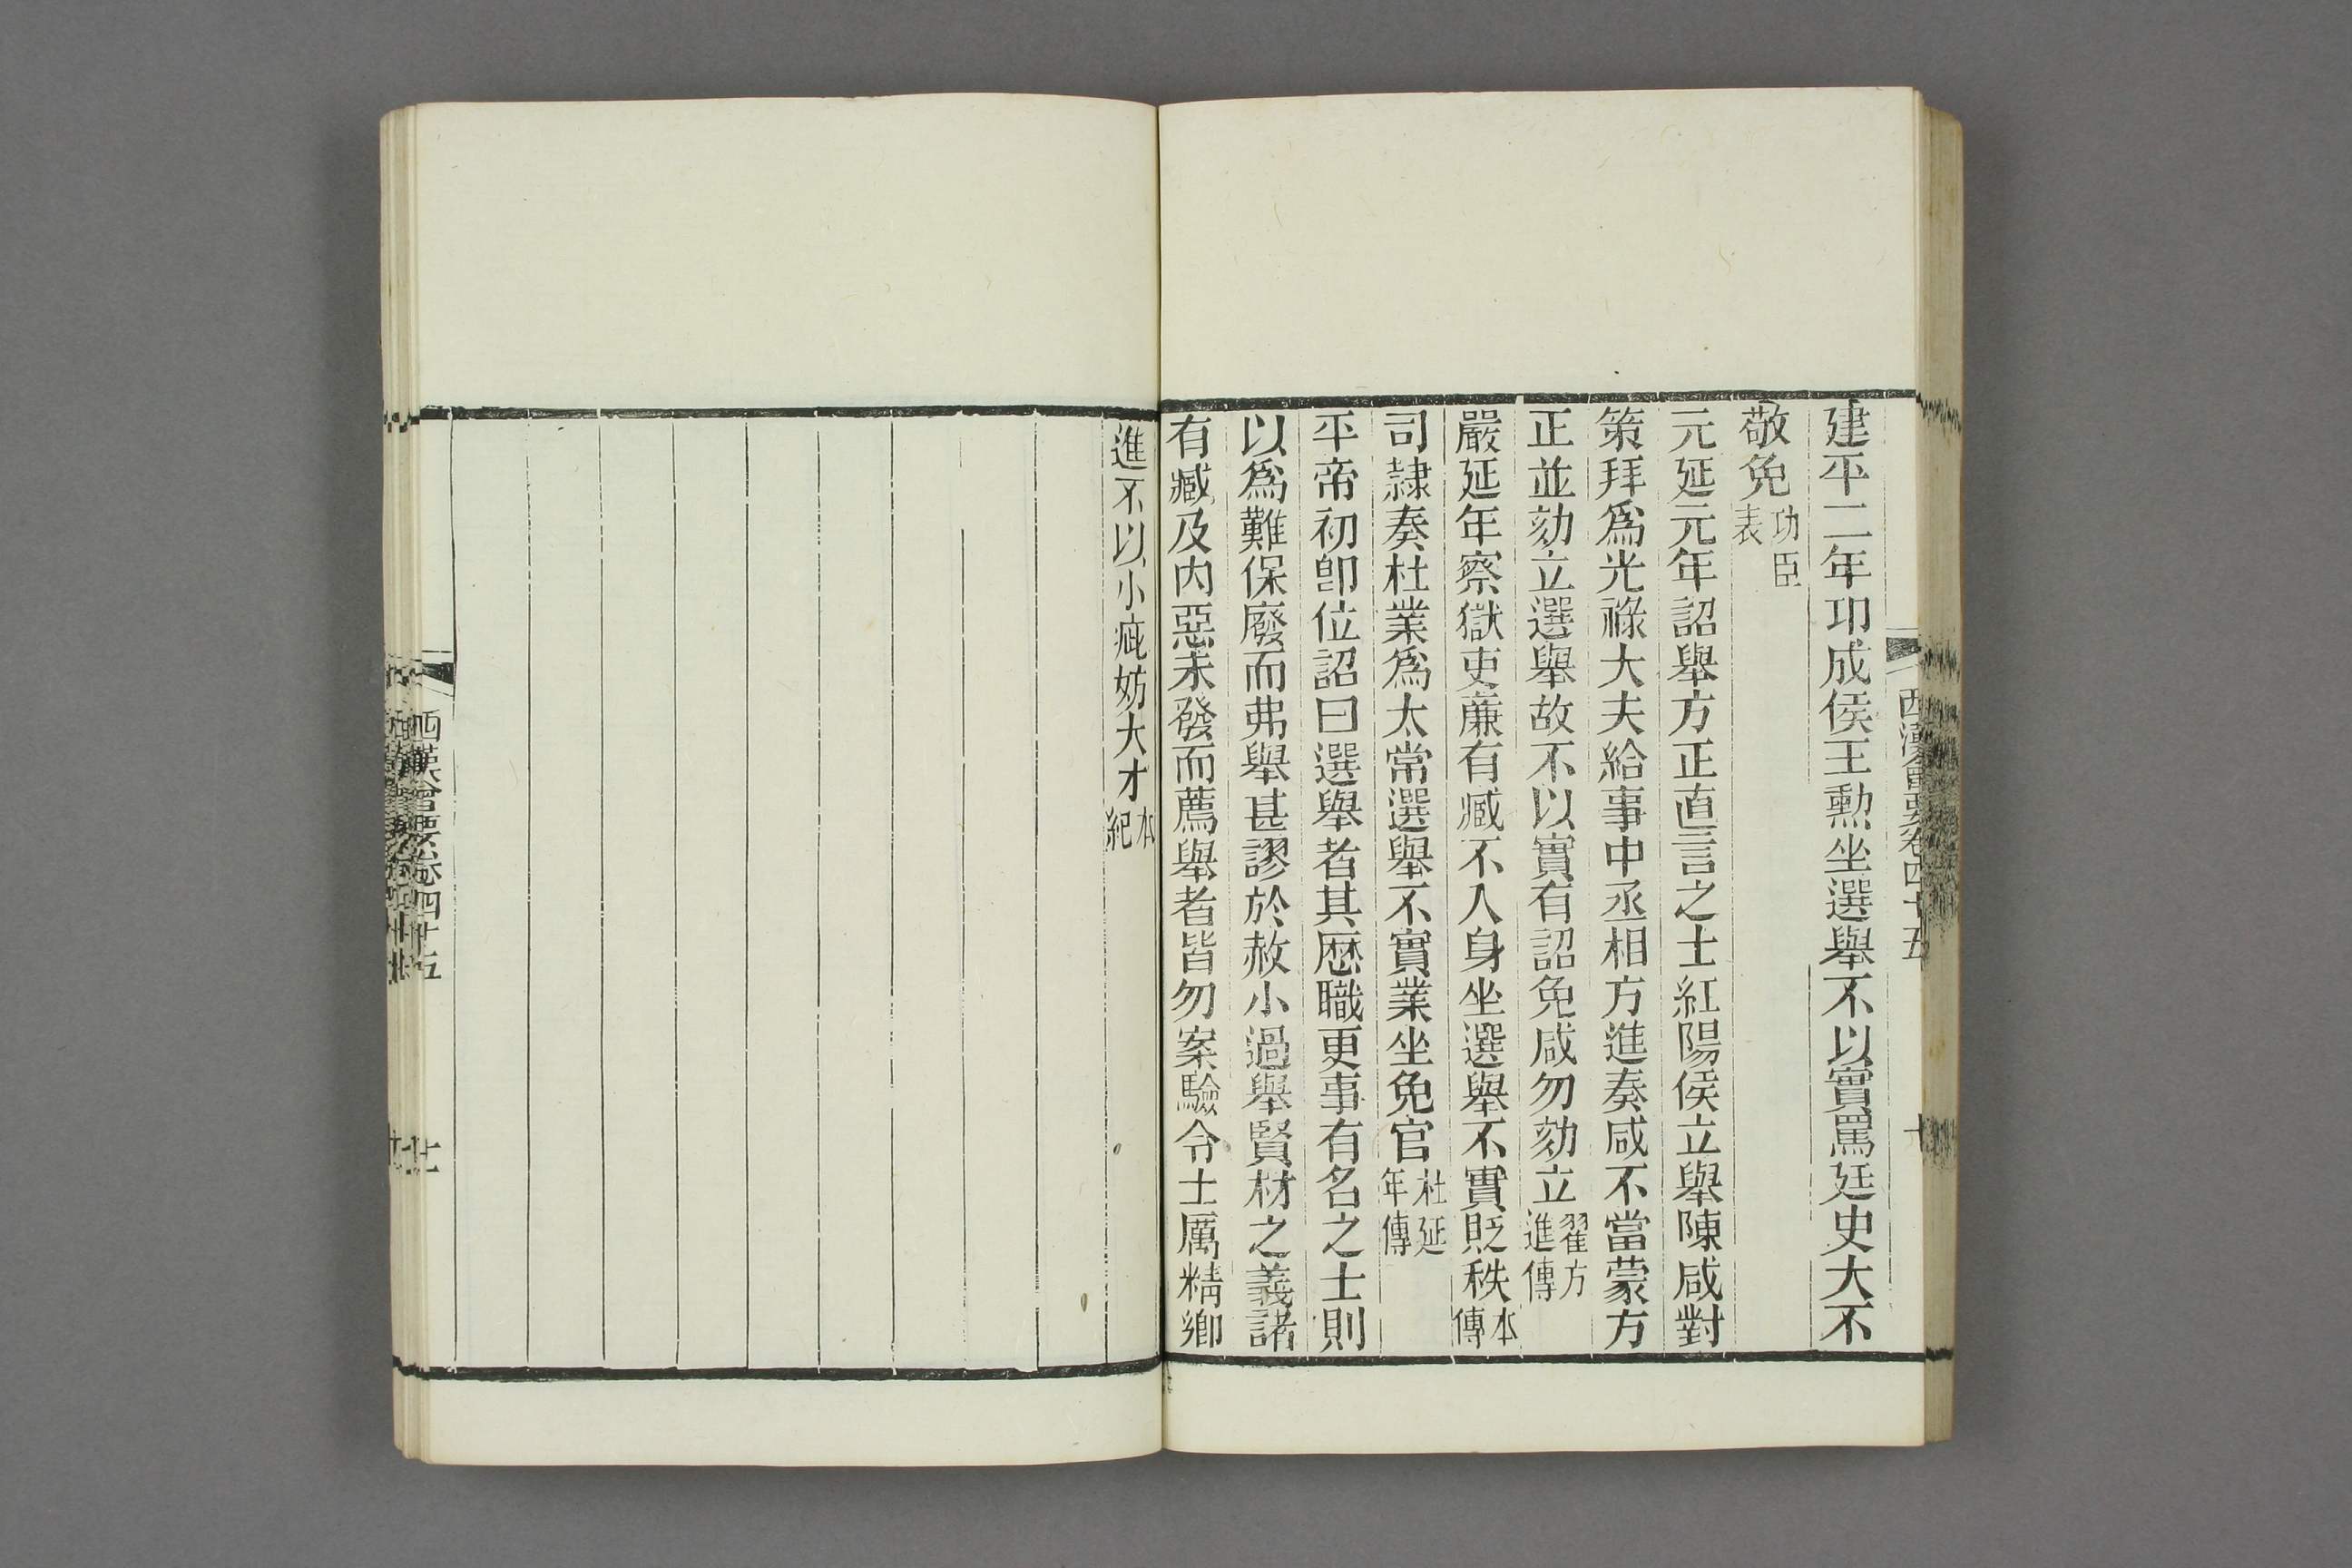 建平二年卭成侯王勲坐選舉不以實罵廷史大不
敬免功臣表
元延元年詔舉方正直言之士紅陽侯立舉陳咸對
策拜爲光祿大夫給事中丞相方進奏咸不當蒙方
正並劾立選舉故不以實有詔免咸勿劾立翟方進傳
嚴延年察獄吏廉有臧不入身坐選舉不實貶秩本傳
司隷奏杜業爲太常選舉不實業坐免官杜延年傳
平帝初卽位詔曰選舉者其歷職更事有名之士則
以爲難保廢而弗舉甚謬於赦小過舉賢材之義諸
有臧及內惡未發而薦舉者皆勿案驗令士厲精鄉
進不以小疵妨大才本紀
西漢會要卷四十五